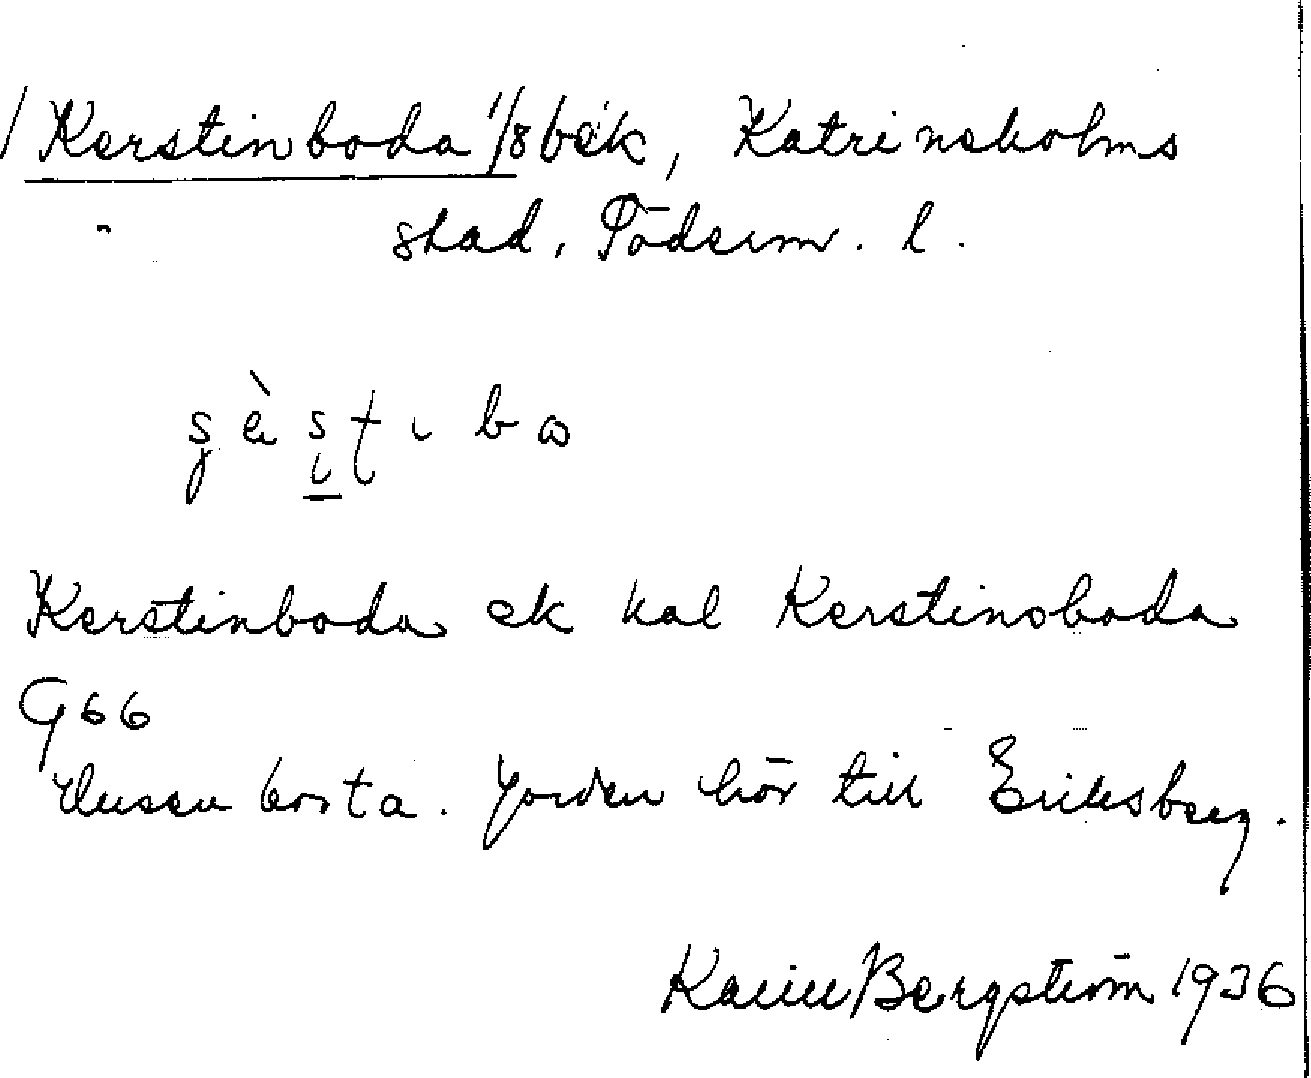 Kerstinboda 1/8 bek, Katrineholms
stad, Södserm. l.
Kerstinboda ek kal Kerstinoboda
G66
Husen borta. Jorden hör till Eriksberg.
Karin Bergström 1936